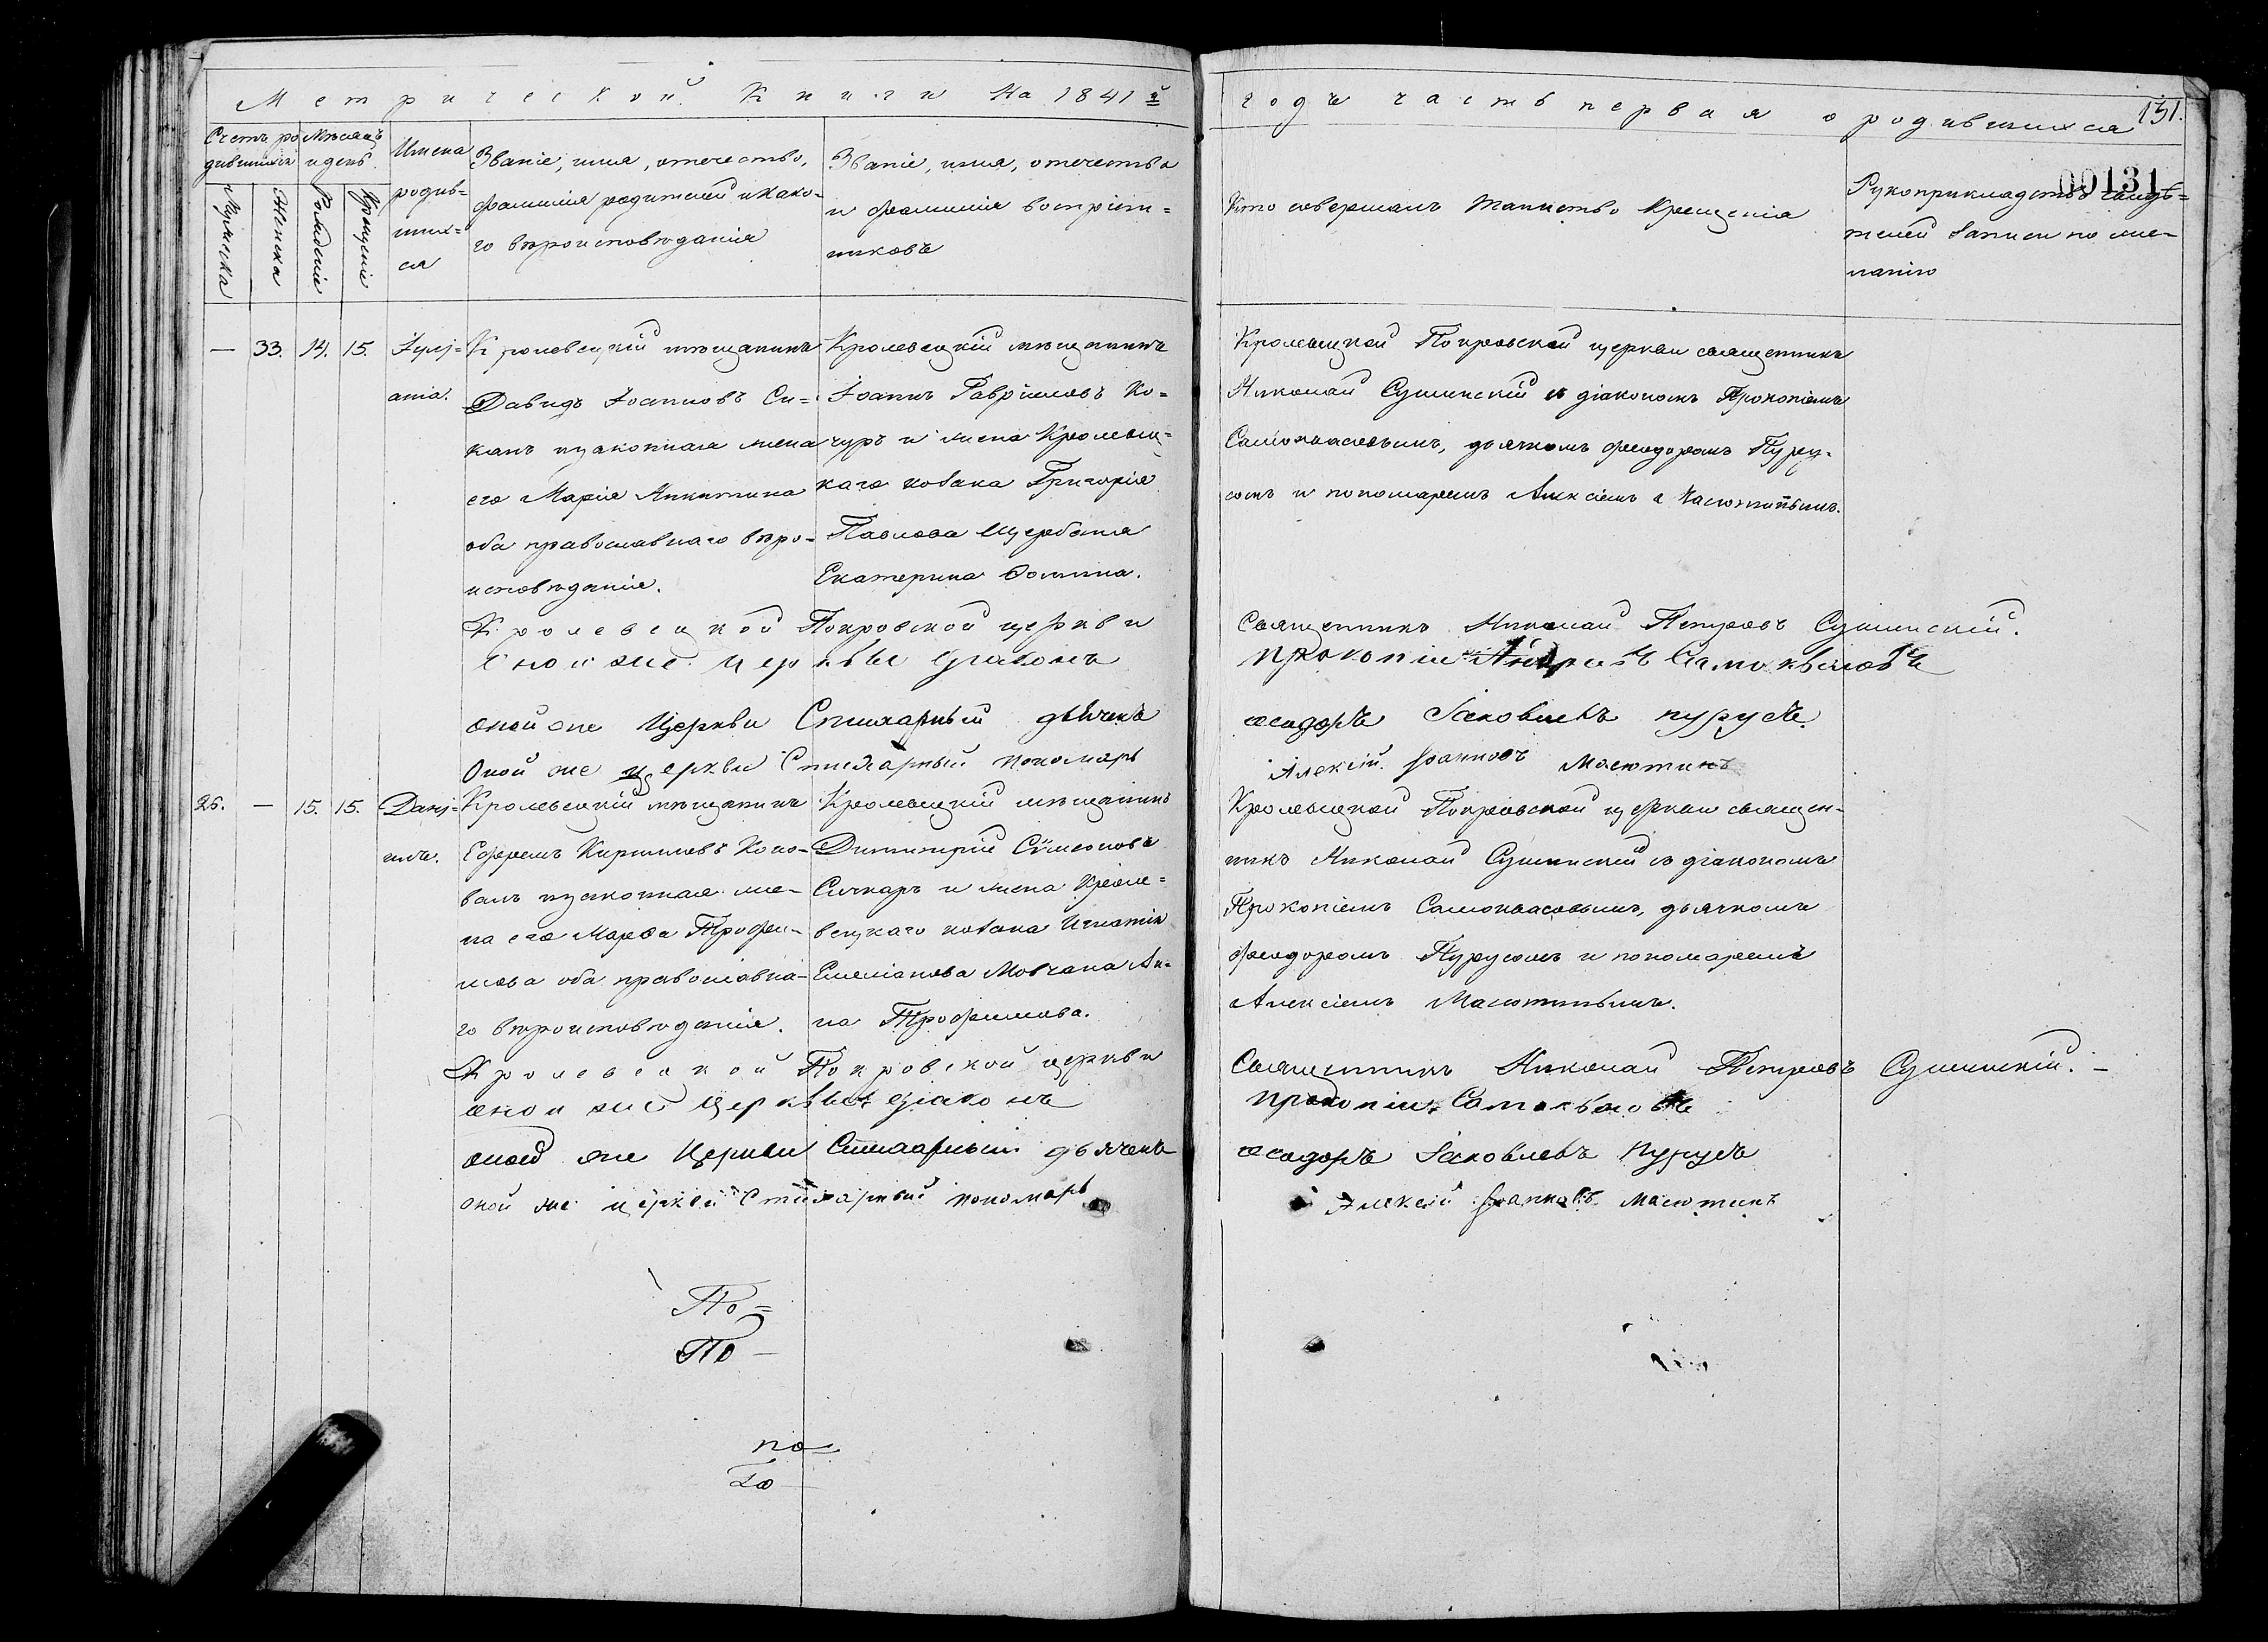 Метрической Книги на 1841й
годъ часть первая о родившихся
131.
00131
Счетъ ро
дившихся
Мужеска
Женска
Мѣсяцъ
и день
Рожденіе
Крещеніе
Имена
родив=
ших=
ся
Званіе, имя, отечество,
фамилія родителей и како=
го вѣроисповѣданія
Званіе, имя, отечество
и фамилія воспріем=
никовъ
Кто совершалъ таинство Крещенія
Рукоприкладство свидѣ=
телей записи по же=
ланію
— 33. 14. 15.
Іулі=
анія.
Кролевецкій мѣщанинъ
Давидъ Іоанновъ Си=
канъ изаконная жена
его Марія Никитина
оба православнаго вѣро=
исповѣданія.
Кролевецкій мѣщанинъ
Іоаннъ Гавріиловъ Ко=
чуръ и жена Кролевец=
каго козака Григорія
Павлова Щербака
Екатерина Фомина.
Кролевецкой Покровской церкви священникъ
Николай Сушинскій съ діакономъ Прокопіемъ
Самоквасовымъ, дьячкомъ Феодоромъ Пуру=
сомъ и пономаремъ Алексіемъ Масютинымъ.
Кролевецкой Покровской церкви
Священникъ Николай Петровъ Сушинскій.
Оной же церквы Діаконъ
Прокопій Самоквасовъ
оной же Церкви Стихарный дьячекъ
Ѳеодоръ Іаковлевъ Пурусъ.
Оной же церкви Стихарный пономарь
Алексій Іоанновъ Масютинъ
26. — 15. 15.
Дані=
илъ.
Кролевецкій мѣщанинъ
Ефремъ Кирилловъ Коно=
валъ изаконная же=
на его Марѳа Трофи=
мова оба православна=
го вѣроисповѣданія.
Кролевецкій мѣщанинъ
Димитрій Сѵмеоновъ
Сичкаръ и жена Кроле=
вецкаго козака Игнатія
Емеліанова Мовчана Ан=
на Трофимова.
Кролевецкой Покровской церкви священ=
никъ Николай Сушинскій съ діакономъ
Прокопіемъ Самоквасовымъ, дьячкомъ
Феодоромъ Пурусомъ и пономаремъ
Алексіемъ Масютинымъ.
Кролевецкой Покровской церкви
Священникъ Николай Петровъ Сушинскій.
оной же Церквы Діаконъ
Прокопій Самоквасовъ
оной же Церкви Стихарный дьячекъ
Ѳеодоръ Іаковлевъ Пурусъ
оной же церкви Стихарный пономарь
Алексій Іоанновъ Масютинъ
По=
По—
по—